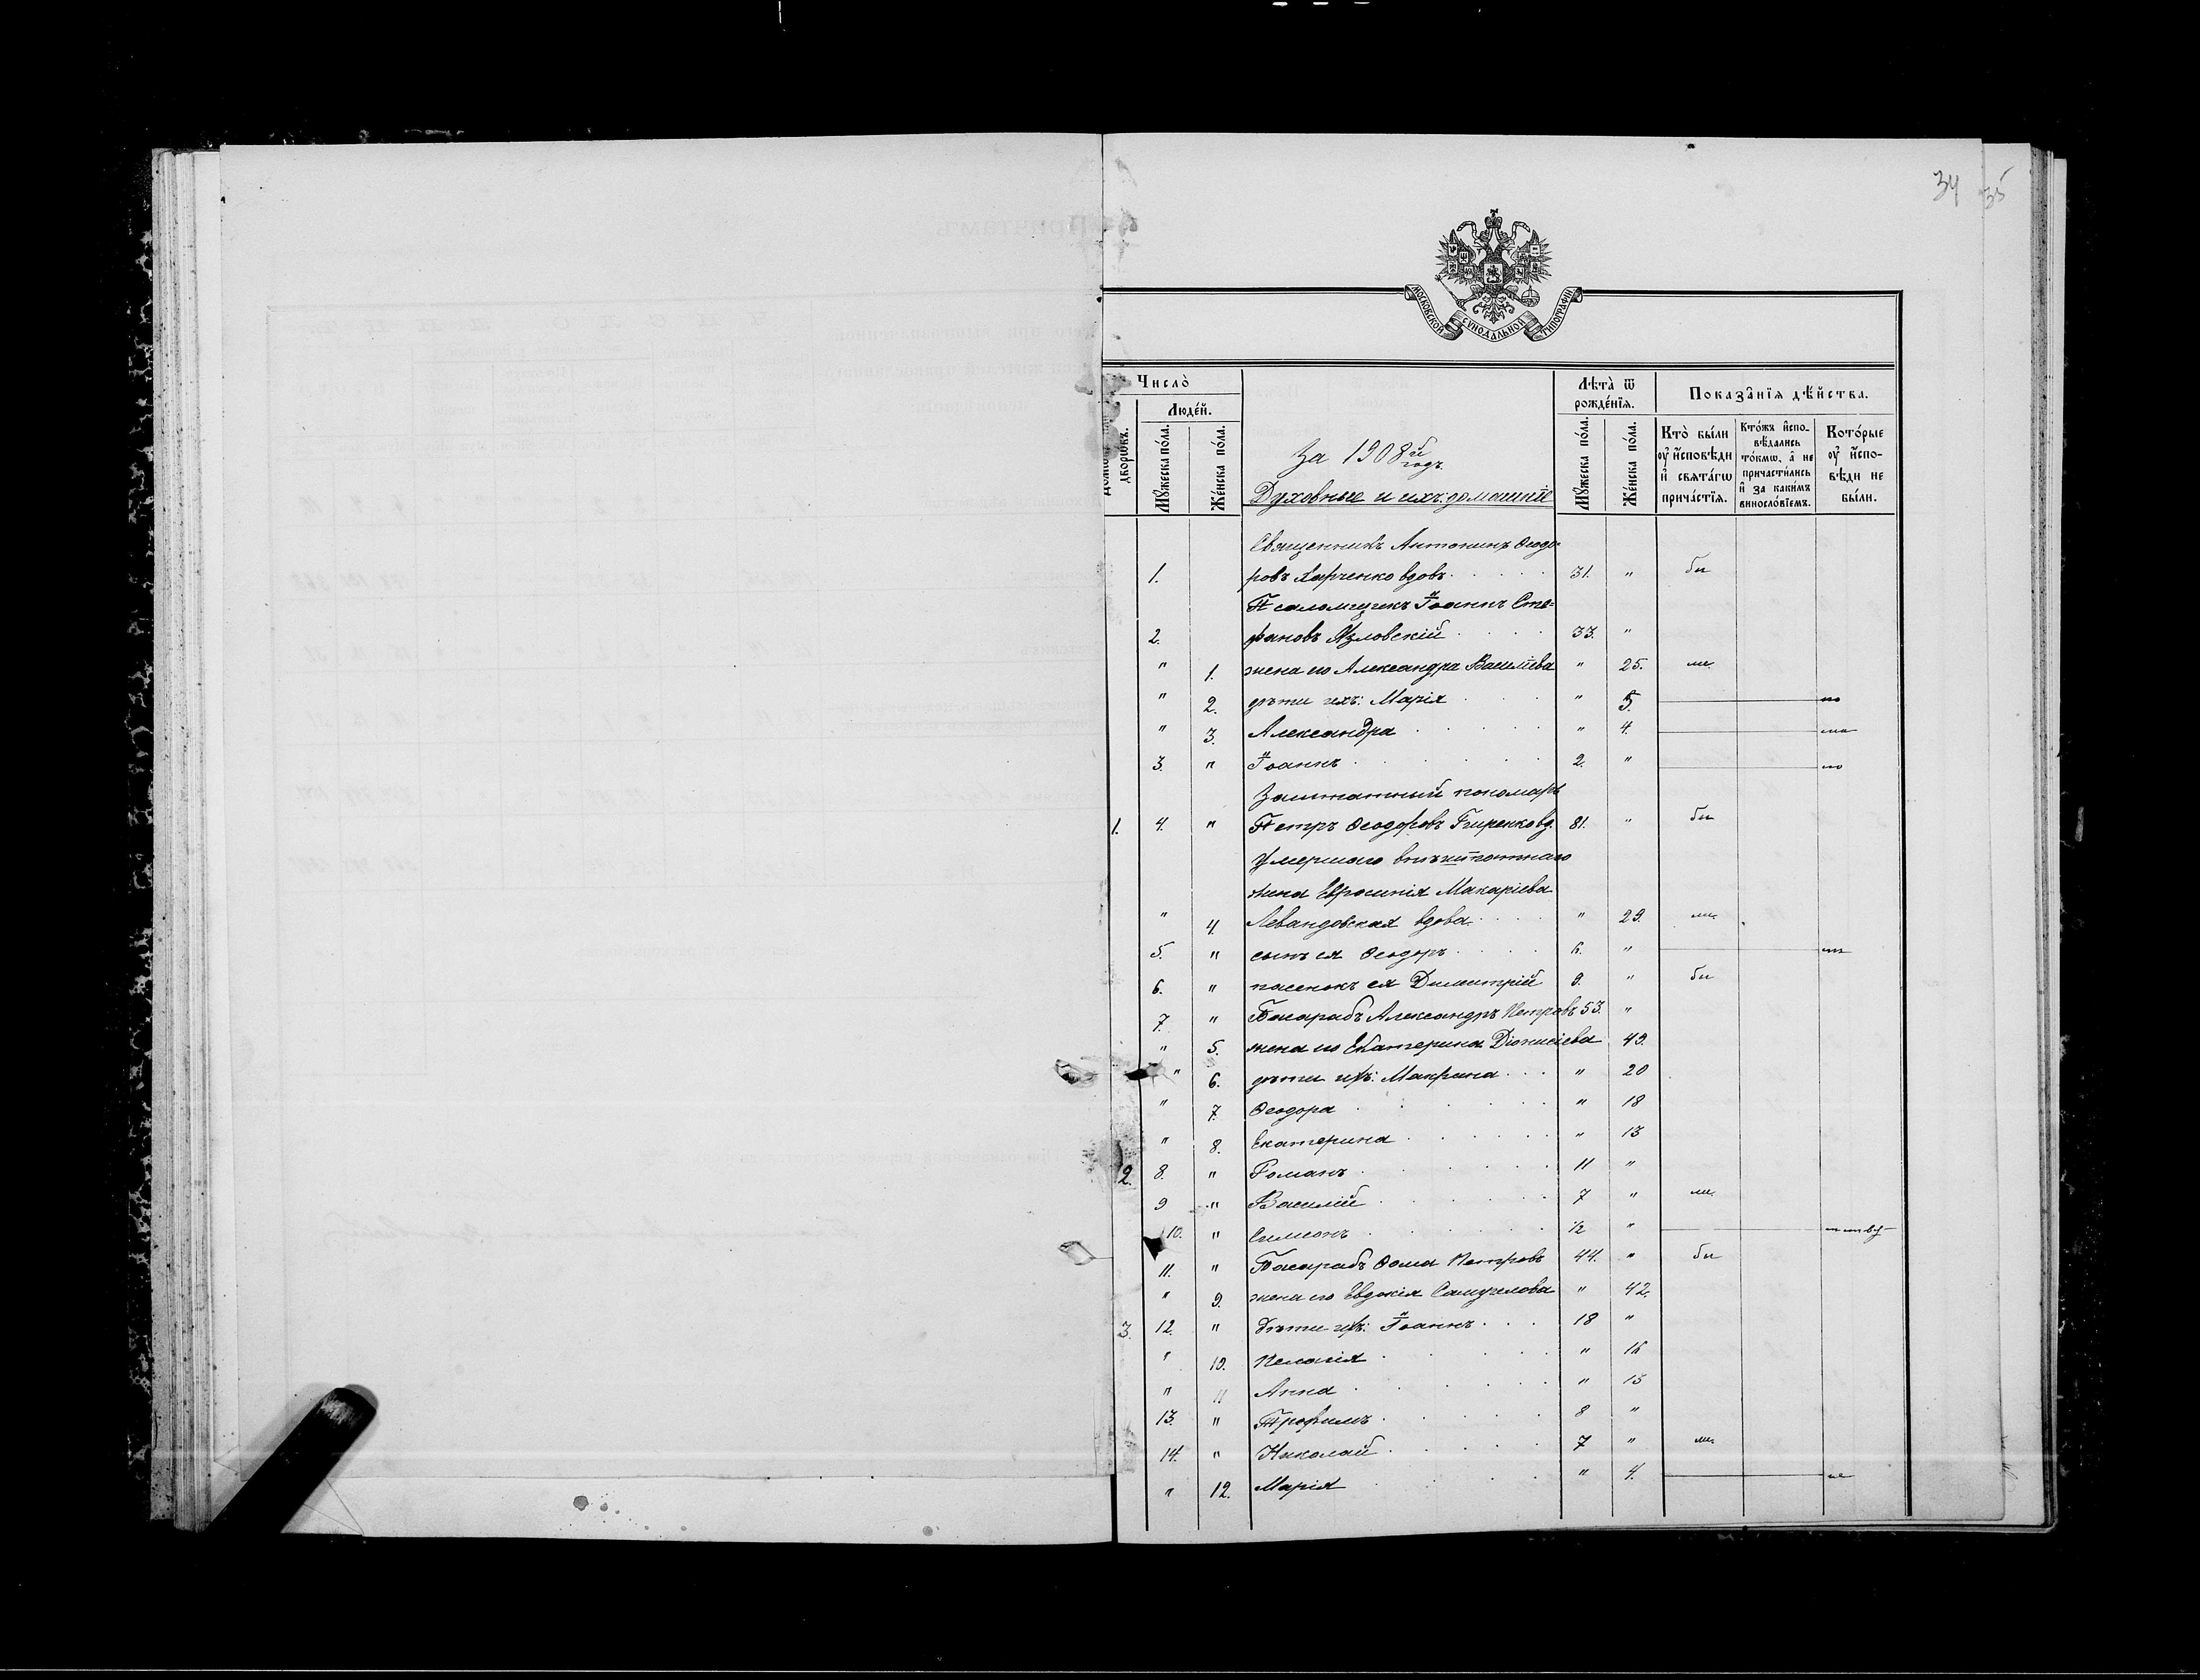 34 35
МОСКОВСКОЙ СѴНОДАЛЬНОЙ ТИПОГРАФІИ
Число̀
Лѣта̀ ѿ рожде́нїѧ.
Показа̑нїѧ дѣ́йства.
дворѡвъ.
Люде́й.
Мꙋ́жеска по́ла.
Же́нска по́ла.
Мꙋ́жеска по́ла.
Же́нска по́ла.
Кто̀ бы́ли ᲂу҆ и҆́сповѣди и҆ свѧта́гѡ прича́стїѧ.
Кто́жъ и҆спо-вѣ́дались то́кмѡ, а҆ не причасти́лись и҆ за каки́мъ винослові́емъ.
Кото́рые ᲂу҆ и҆́спо-вѣди не бы́ли.
За 1908й годъ.
Духовные и ихъ домашніе
Священникъ Антонинъ Ѳеодо-
1. ровъ Харченко вдовъ 31. "  бы
Псаломщикъ Іоаннъ Сте=
2. фановъ Язловскій 33. "
" 1. жена его Александра Васильева " 25. ли.
" 2. дѣти ихъ: Марія " 5. по
" 3. Александра " 4. ма
3. " Іоаннъ 2. " по
Заштатный пономарь
1. 4. " Петръ Ѳеодоровъ вд. 81. " бы
Умершаго
жена Евросинія Макаріева
" 4. Левандовская вдова " 29. ли.
5. " сынъ ея Ѳеодоръ 6. "
6. " пасенокъ ея Димитрій 9. " бы
7. " Басарабъ Александръ Петровъ 53. "
" 5. жена его Екатерина Діонисіева 49.
" 6. дѣти ихъ: Макрина " 20
" 7. Ѳеодора " 18
" 8. Екатерина " 13
2. 8. " Романъ 11 "
9 " Василій 7 " ли.
10. " Симеонъ 1/2 "
11. " Басарабъ Ѳома Петровъ 44. " бы
" 9. жена его Евдокія Самуилова " 42.
3. 12. " Дѣти ихъ: Іоаннъ 18 "
" 10. Пелагія " 16
" 11 Анна " 13
13. " Трофимъ 8 "
14. " Николай 7 " ли.
" 12. Марія " 4.